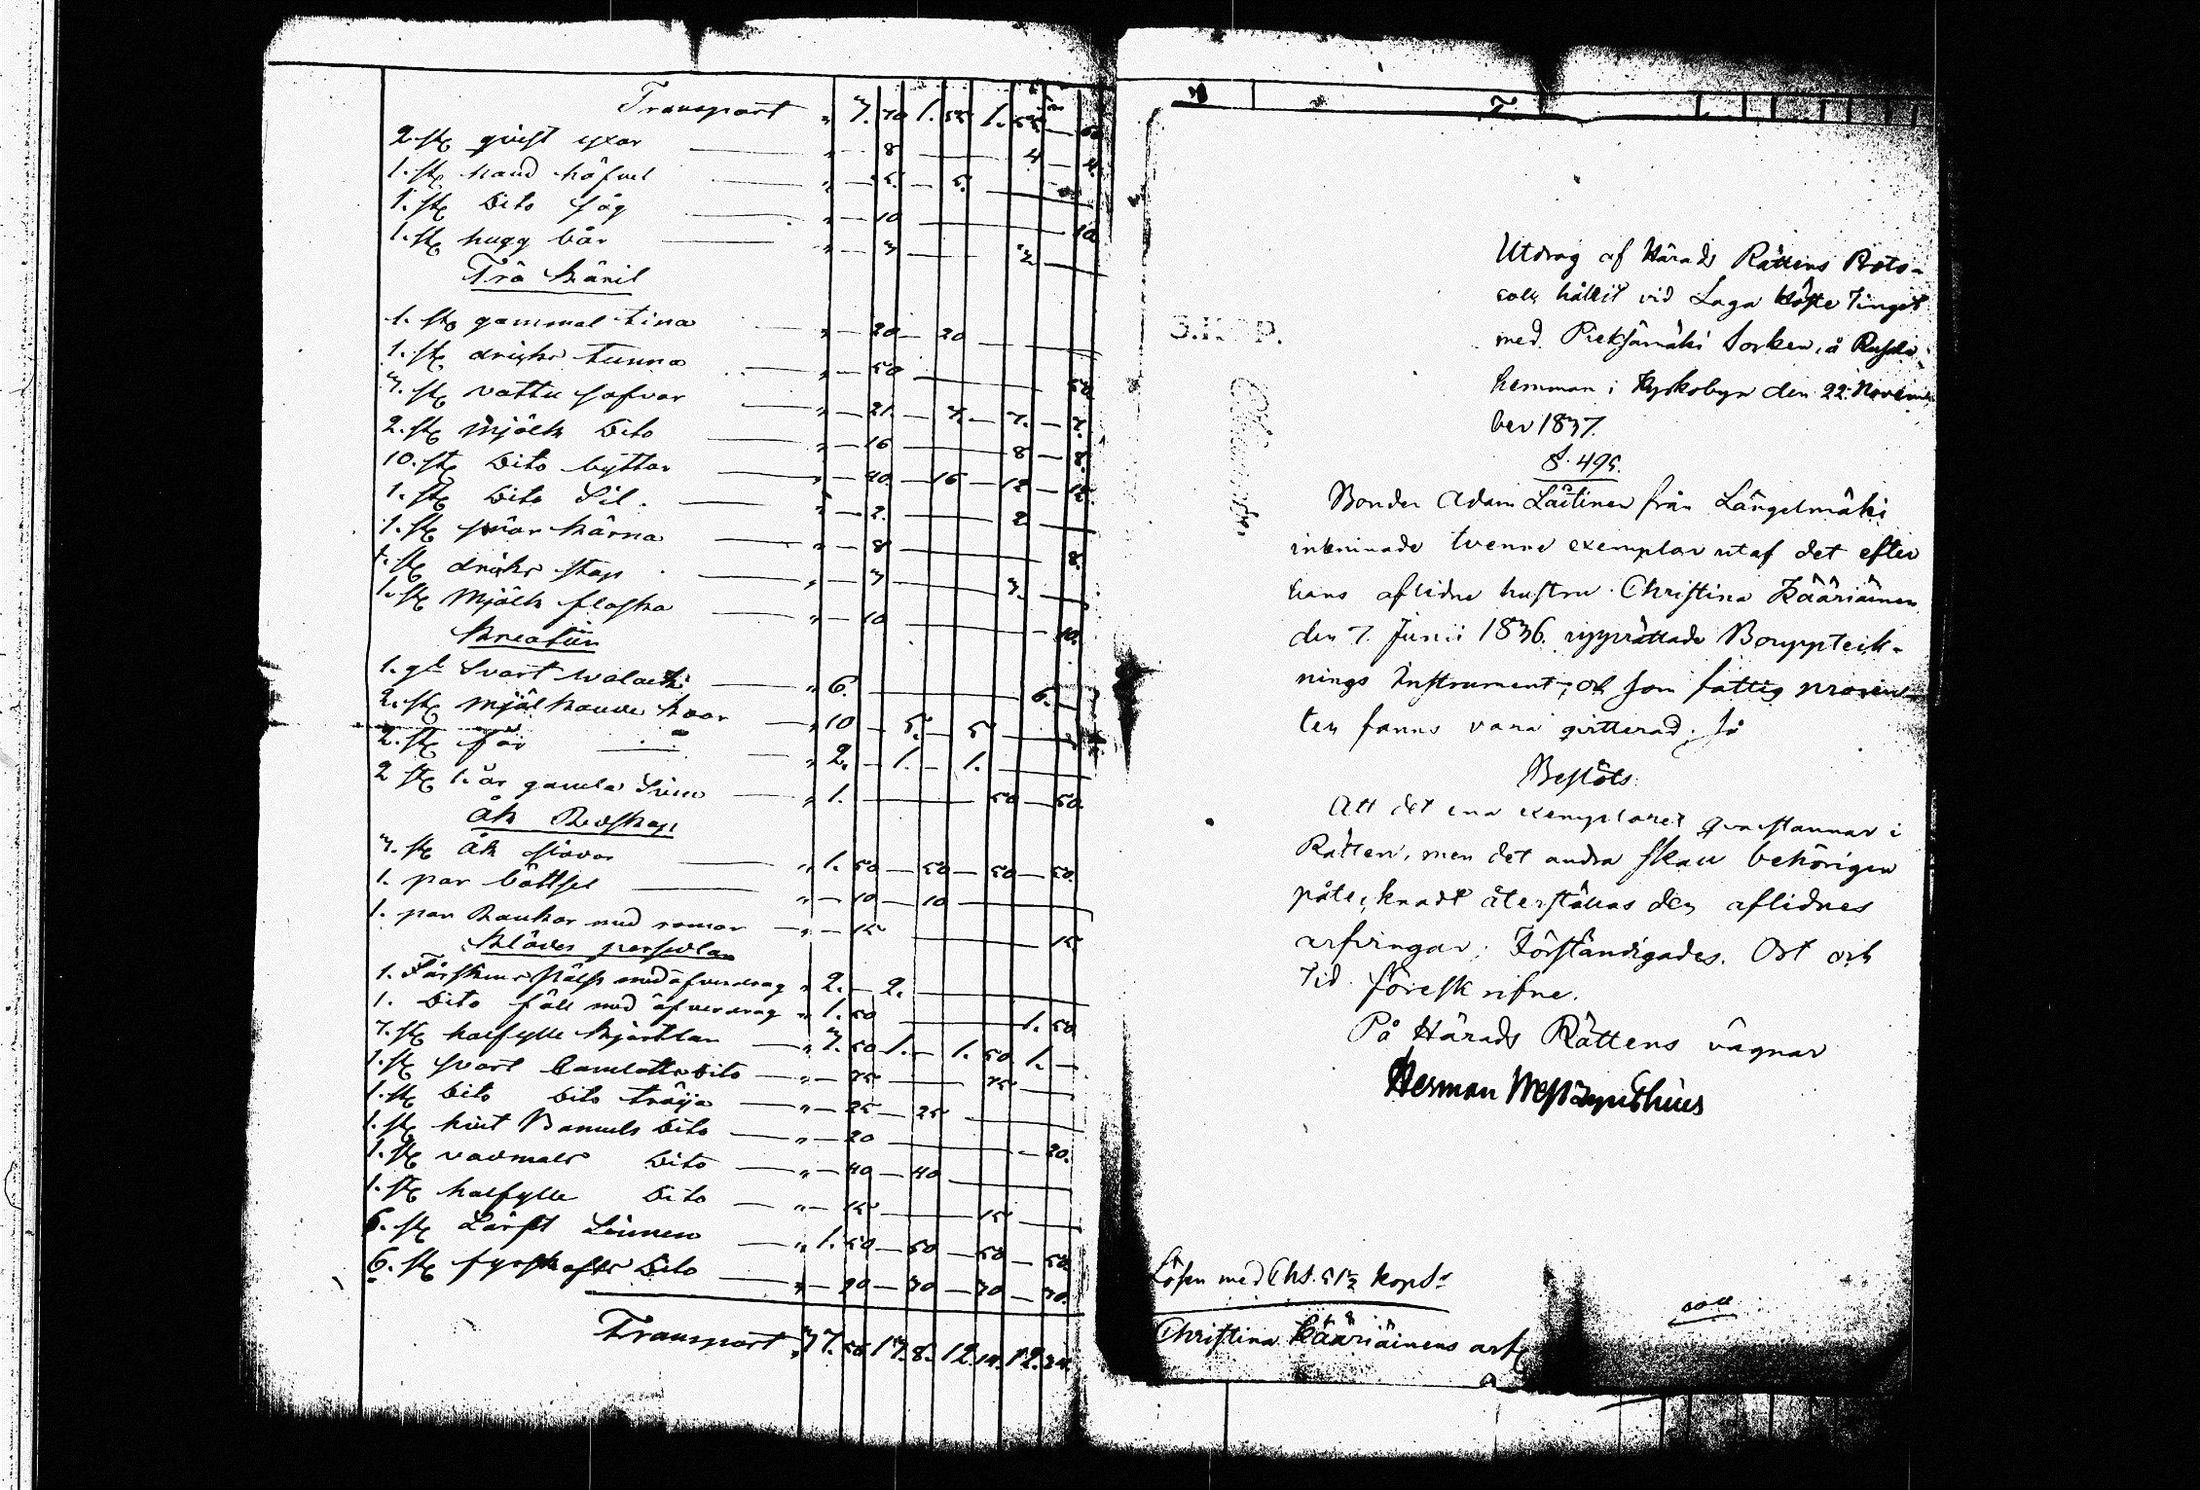 Transport " 7. 70 1. 55 1. 55 — 60
2. st qvist yxor — 8 — 4 — 4.
1. st hand höfvel — 5. — 5.
1. st dito såg — 10 — 10
1. st hugg bår — 3 — 3
Trä Käril
1. st gammal tina — 20 — 20
1. st dricks tunna — 50 — 50
3. st vattu sofvar — 21. — 7. — 7. — 7.
2. st mjölk dito — 16 — 8 — 8.
10. st dito byttor — 40. — 16 — 12 — 12.
1. st dito Sil. — 2. — 2
1. st smör kärna — 8 — 8.
1. st dricks stop — 3 — 3.
1. st Mjölk flaska — 10 — 10.
Kreatur
1. st Svart walack " 6. — 6.
2. st mjölkande koor " 10 — 5. — 5
2. st får " 2. — 1. — 1.
2 st 1. år gamla Svin " 1. — 50 — 50.
Åk Redskap
3. st åk slädor " 1. 50 — 50 — 50 — 50.
1. par böttsel " — 10 — 10
1. par Rankor med remar " — 15 — 15
Kläder persedlar
1. Fårskins päls med öfverdrag " 2. — 2.
1. dito fäll med öfverdrag " 1. 50 — 1. 50
3. st halfylle kjortlar " 3. 50 1. — 1. 50 1. —
1. st svart Camlotts dito " — 75 — 75
1. st dito dito tröja " — 25 — 25
1. st hvit Bomuls dito " — 20 — 20.
1. st vadmals dito " — 40 — 40
1. st halfylle dito " — 15 — 15
6. st Lärft Linnen " 1. 50 — 50 — 50 — 50.
6. st fyrskafts dito " — 90 — 30 — 30 — 30.
Transport 37. 56 13. 8. 12. 14. 12. 34
Utdrag af Härads Rättens Proto-
coll hållit vid Laga Höste Tinget
med Pieksämäki Socken, å
hemman i Kyrkobyn den 22. Novem
ber 1837.
§. 495.
Bonden Adam Laitinen från Längelmäki
inlemnade tvenne exemplar utaf det efter
hans aflidne hustru Christina Kääriäinen
den 7. Junii 1836. upprättade Bouppteck-
nings Instrument, och som fattig procen-
ten fanns vara qvitterad; så
Beslöts.
Att det ena exemplaret qvarstannar i
Rätten, men det andra skall behörigen
påtecknadt återställas den aflidnes
arfvingar; Förständigades. Ort och
tid föreskrifne.
På Härads Rättens vägnar
Herman Westzynthius
Lösen med 51½ kop Sr
Christina Kääriäinens arf